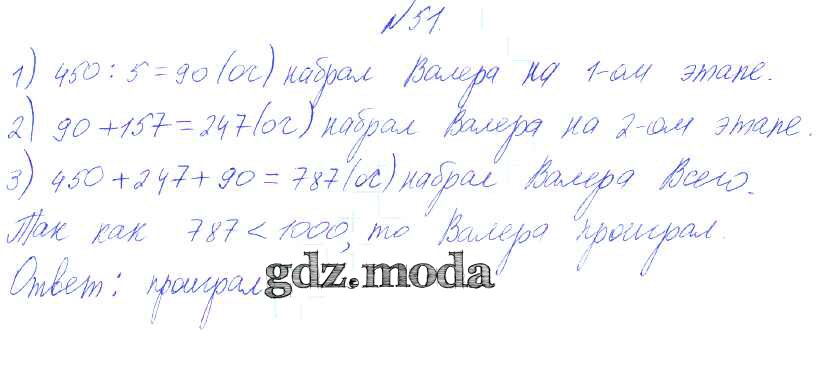 №51.
1) 450 : 5 = 90 (оч) набрал Валера на 1-ом этапе.
2) 90 + 157 = 247 (оч) набрал Валера на 2-ом этапе.
3) 450 + 247 + 90 = 787 (оч) набрал Валера Всего.
Так как 787 < 1000, то Валера проиграл.
Ответ: проиграл
gdz.moda